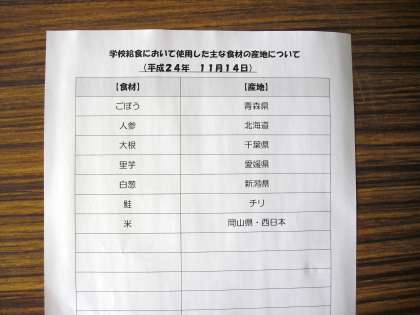 学校給食において使用した主な食材の産地について
（平成２４年　１１月１４日）
【食材】 【産地】
ごぼう 青森県
人参 北海道
大根 千葉県
里芋 愛媛県
白葱 新潟県
鮭 チリ
米 岡山県・西日本